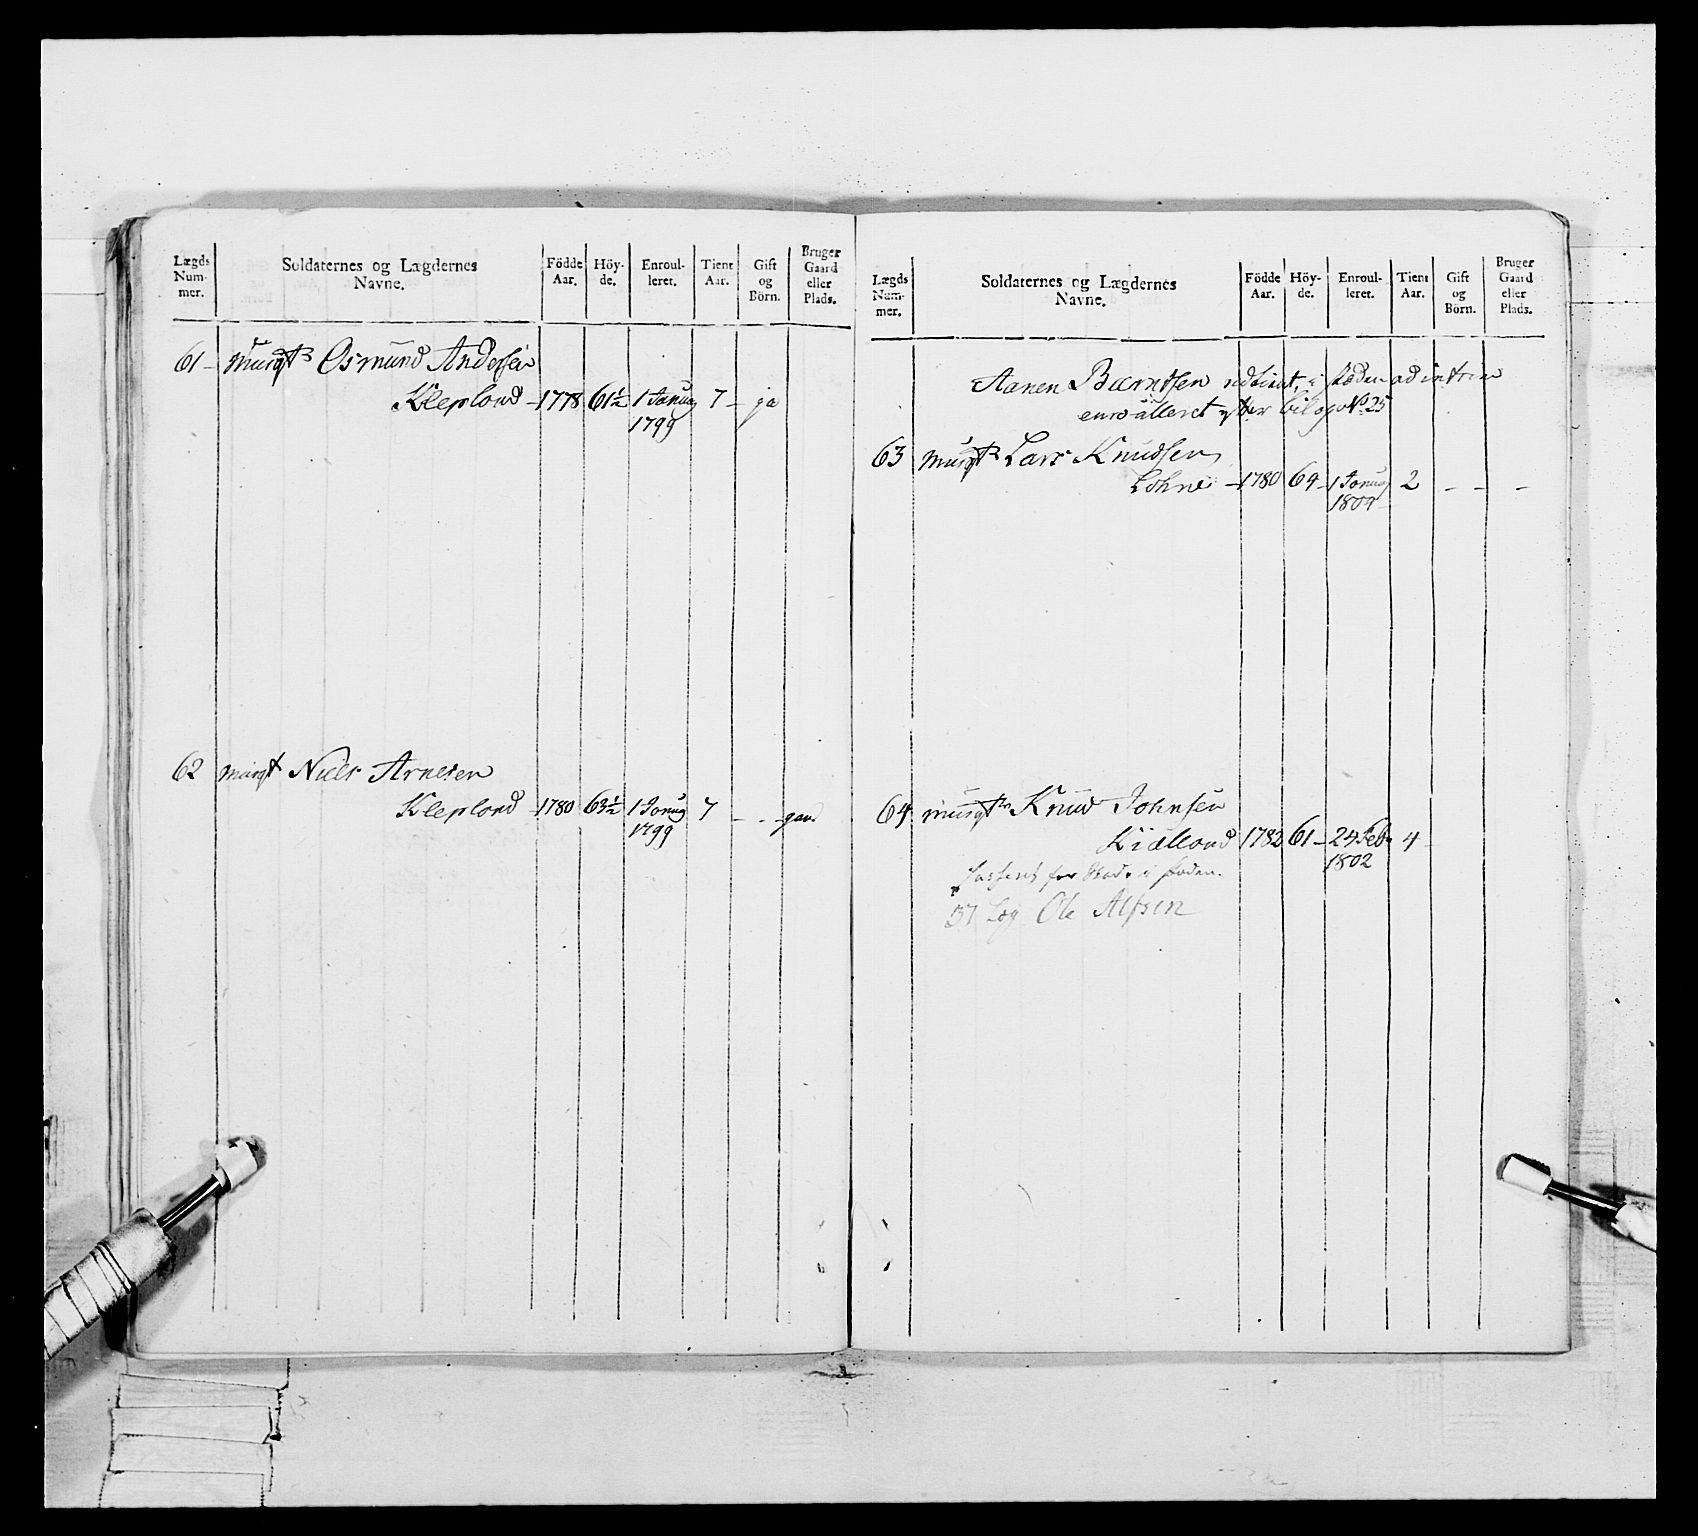 Lægds Num- mer.
Soldaternes og Lægdernes Navne.
Födde Aar.
Höy- de.
Enroul- leret.
Tient Aar.
Gift og Börn.
Bruger Gaard eller Plads.
61 - musqt Osmund Andersen
Kleplond - 1778 61½ 1 Janua 7 - ja
1799
62 musqt Niels Arnesen
Kleplond - 1780 63½ 1 Janua 7 - - gaard
1799
Lægds Num- mer.
Soldaternes og Lægdernes Navne.
Födde Aar.
Höy- de.
Enroul- leret.
Tient Aar.
Gift og Börn.
Bruger Gaard eller Plads.
Aanen Berntsen udtient, i støden ad intrim
enroulleret efter bilag No 25
63 musqt Lars Knudsen
Lohne - 1780 64 - 1 Janua 2 - - -
1804 -
64 musqt Knud Johnsen
Kiællond 1782 61 - 24 Feb. 4 -
1802
for i støden.
37 Leg Ole Alfsen